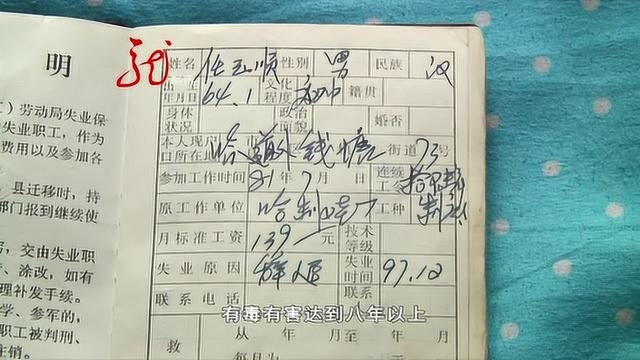 明
）劳动局失业保
失业职工，作为
费用以及参加各
县迁移时，持
部门报到继续使
写，交由失业职
、涂改，如有
理补发手续。
学、参军的，
职工被判刑、
注销。
龙
姓名 任玉顺 性别 男 民族 汉
出生年月日 64.1 文化程度 初中 籍贯
身体状况 政治面貌 婚否
本人现户口所在地 哈 道外 钱塘 街道 73号
参加工作时间 81年7月 日 连续工
原工作单位 哈制 厂 工种
月标准工资 139 元 技术等级
失业原因 辞退 失业时间 97.12
联系电话 联系
救 从 年 月至 年 月
每月为
有毒有害达到八年以上